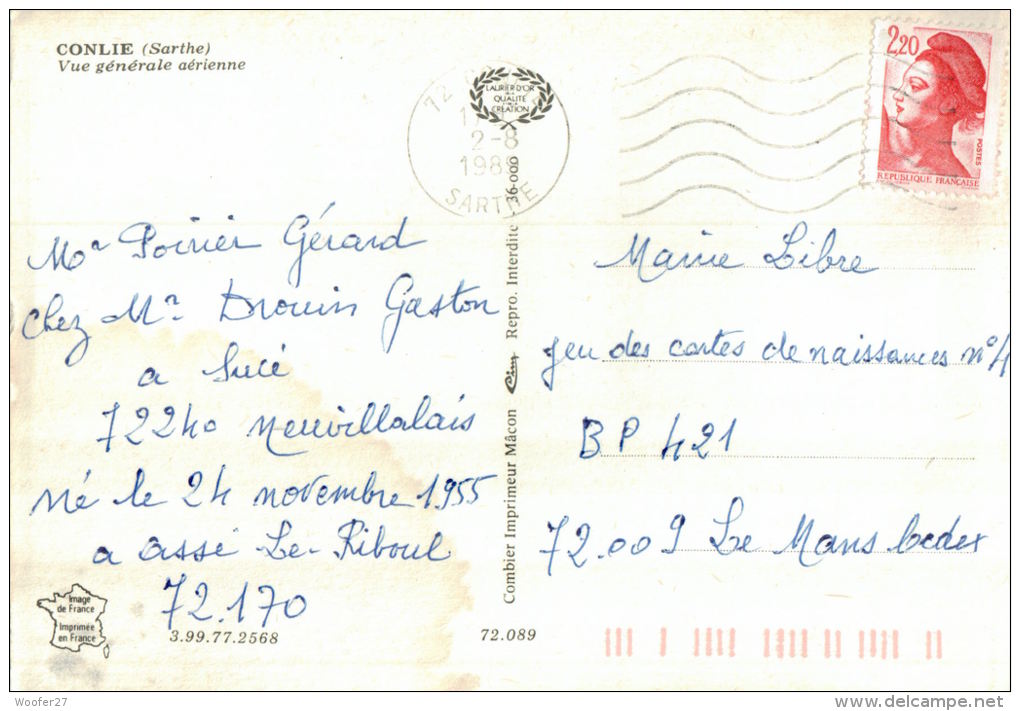 CONLIE (Sarthe)
Vue générale aérienne
LAURIER D'OR
DE LA
QUALITÉ
CRÉATION
72
2-8
198
SARTHE
2,20
POSTES
REPUBLIQUE FRANÇAISE
Mr Poirier Gérard
chez Mr. Drouin Gaston
a Sucé
72240 Neuvillalais
Né le 24 novembre 1955
a assé Le-Riboul
72.170
Maine Libre
jeu des cartes de naissances n°4
BP 421
72.009 Le Mans Cedex
Combier Imprimeur Mâcon Cim Repro. Interdite 36-000
Image
de France
Imprimée
en France
3.99.77.2568
72.089
Woofer27
delcampe.net